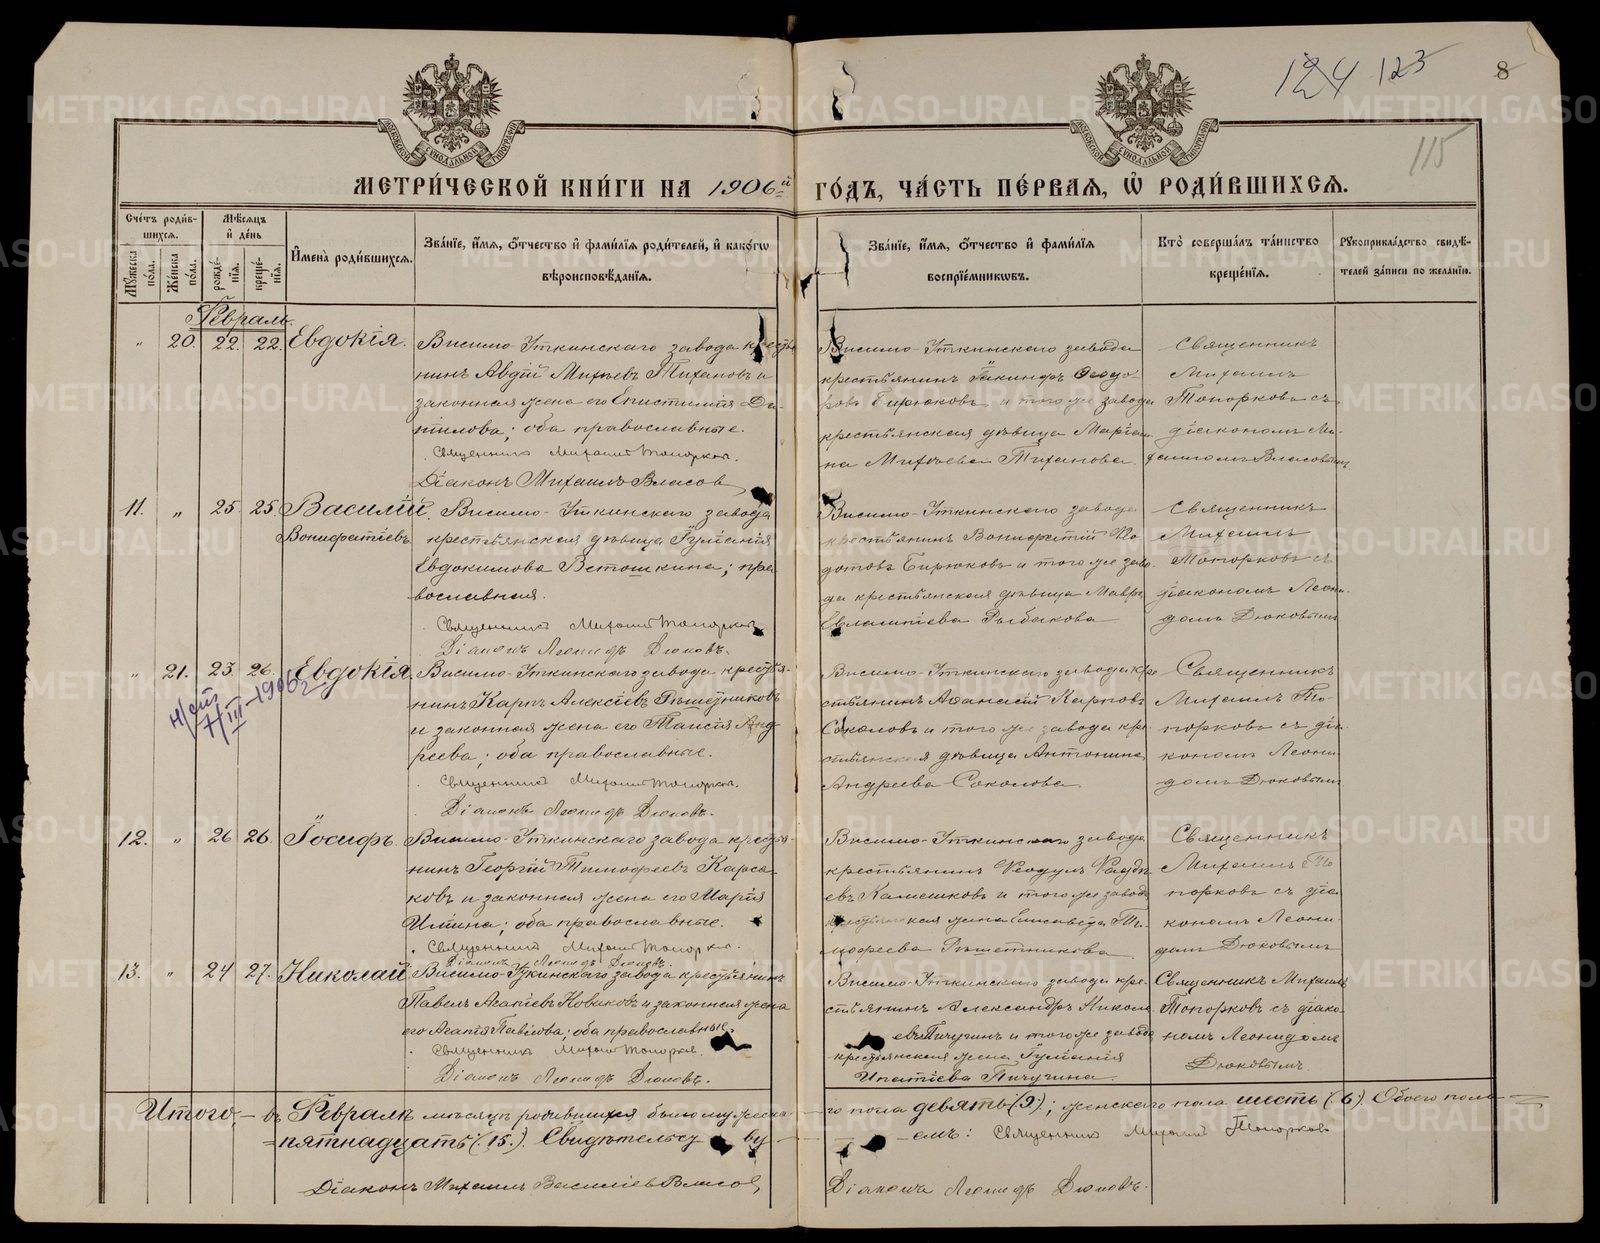 124 123
8
115
МОСКОВСКОЙ СѴНОДАЛЬНОЙ ТИПОГРАФІИ
МОСКОВСКОЙ СѴНОДАЛЬНОЙ ТИПОГРАФІИ
МЕТРИ́ЧЕСКОЙ КНИ́ГИ НА 1906й ГО́ДЪ, ЧА́СТЬ ПЕ́РВАЯ, Ѡ РОДИ́ВШИХСЯ.
Счётъ роди́вшихся.
Мѣ́сяцъ и де́нь
Мꙋ́жеска по́ла.
Же́нска по́ла.
рожде́нїя.
креще́нїя.
Имена̀ роди́вшихся.
Зва́нїе, и́мя, ѻ҆́тчество и фами́лїя роди́телей, и како́гѡ вѣроисповѣ́данїя.
Зва́нїе, и́мя, ѻ҆́тчество и фами́лїя воспрїе́мникѡвъ.
Кто̀ соверша́лъ та́инство креще́нїя.
Рꙋкоприкла́дство свидѣ́телей за́писи по жела́нїю.
Февраль.
" 20. 22. 22. Евдокія.
Висимо-Уткинскаго завода кресть-
нинъ Авдій Михѣевъ Тихановъ и
законная жена его Епистимія Да-
нилова; оба православные.
Священникъ Михаилъ Топорковъ.
Діаконъ Михаилъ Власовъ
Висимо-Уткинскаго завода
крестьянинъ Іакинфъ Ѳеодо-
ровъ Бирюковъ и того же завода
крестьянская дѣвица Маріа-
на Михѣева Тиханова.
Священникъ
Михаилъ
Топорковъ съ
діакономъ Ми-
хаиломъ Власовымъ
11. " 25. 25. Василій
Вонифатіевъ.
Висимо-Уткинскаго завода
крестьянская дѣвица Іуліанія
Евдокимова Ветошкина; пра-
вославная.
Священникъ Михаилъ Топорковъ.
Діаконъ Леонидъ Дюковъ.
Висимо-Уткинскаго завода
крестьянинъ Вонифатій Ѳе-
дотовъ Бирюковъ и того же заво-
да крестьянская дѣвица Мавра
Евлампіева Рыбакова
Священникъ
Михаилъ
Топорковъ съ
діакономъ Леони-
домъ Дюковымъ
" 21. 23. 26. Евдокія.
7/III-1906 г
Висимо-Уткинскаго завода крестья-
нинъ Карпъ Алексѣевъ Рѣшетниковъ
и законная жена его Таисія Анд-
реева; оба православные.
Священникъ Михаилъ Топорковъ.
Діаконъ Леонидъ Дюковъ.
Висимо-Уткинскаго завода кре-
стьянинъ Аѳанасій Карповъ
Соколовъ и того же завода кре-
стьянская дѣвица Антонина
Андреева Соколова
Священникъ
Михаилъ То-
порковъ съ діа-
кономъ Леони-
домъ Дюковымъ
12. " 26 26. Іосифъ.
Висимо-Уткинскаго завода крестья-
нинъ Георгій Тимофеевъ Карса-
ковъ и законная жена его Марія
Ильина; оба православные.
Священникъ Михаилъ Топорковъ.
Діаконъ Леонидъ Дюковъ.
Висимо-Уткинскаго завода
крестьянинъ Ѳеодулъ
евъ Калешковъ и того же завода
крестьянская жена Елисавета Ти-
мофеева Рѣшетникова
Священникъ
Михаилъ То-
порковъ съ діа-
кономъ Леони-
домъ Дюковымъ
13. " 24 27. Николай
Висимо-Уткинскаго завода крестьянинъ
Павелъ Агапіевъ Новиковъ и законная жена
его Агапія Павлова; оба православные.
Священникъ Михаилъ Топорковъ.
Діаконъ Леонидъ Дюковъ.
Висимо-Уткинскаго завода кре-
стьянинъ Александръ Никола-
евъ Пичугинъ и того же завода
крестьянская жена Іуліанія
Ипатіева Пичугина.
Священникъ Михаилъ
Топорковъ съ діако-
номъ Леонидомъ
Дюковымъ.
Итого, – въ Февралѣ мѣсяцѣ родившихся было мужеска-
го пола девять (9); женскаго пола шесть (6) Обоего пола
– пятнадцать (15). Свидѣтельству-
емъ: Священникъ Михаилъ Топорковъ
Діаконъ Михаилъ Василіевъ Власовъ,
Діаконъ Леонидъ Дюковъ.
METRIKI.GASO-URAL.RU